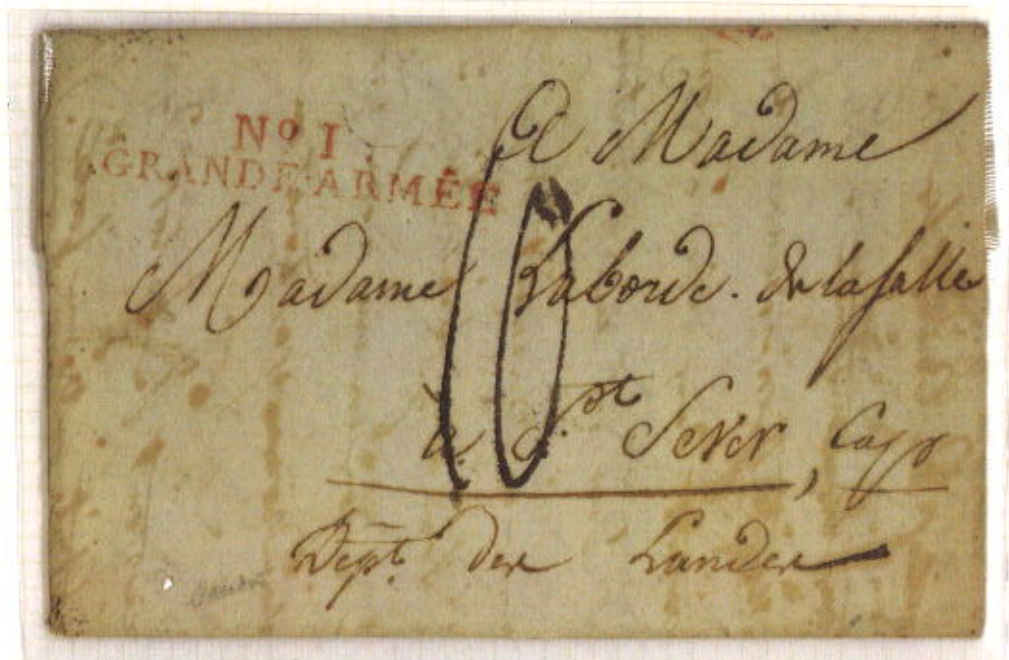 No I
GRANDE ARMÉE
A Madame
Madame Laborde. de lasalle
10
à St Sever, Cap
Dept. des Landes